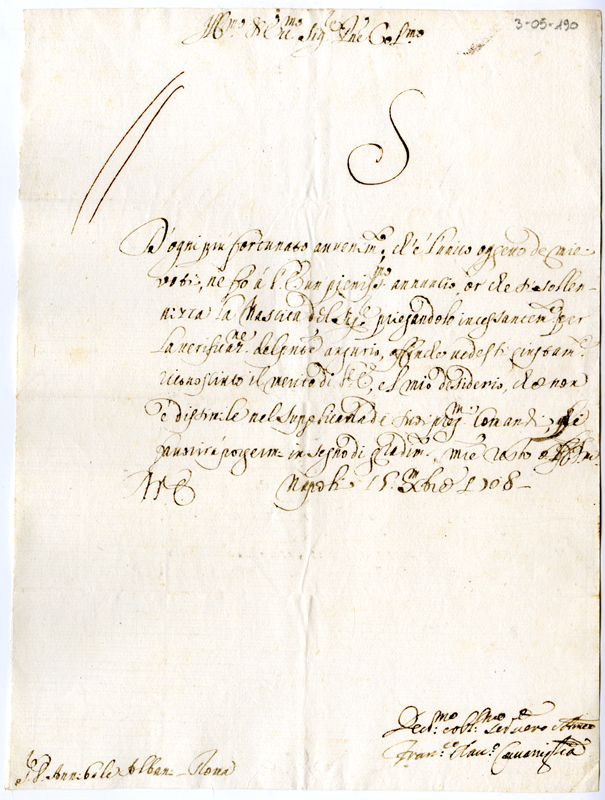 3-05-190
Ill.mo & Ecc.mo Sig.re P.ne Col.mo
S
D'ogni più fortunato avvenim.to, ch'è l'unico oggetto de miei
voti, ne fò à V. E. un pieniss.mo annuncio or che si sollen-
nizza la Nascita del Sig.re, pregandolo incessantem.te per
la verificaz.ne del p̃nte augurio, affinche vedesti
riconosciuto il merito di V. E., el mio desiderio, che non
è distin.le nel supplicarla de suoi preg.mi Comandi, che
favorirà porgerm- in segno di gradim.
V. E. Napoli 15 Xbre 1708-
Dev.mo et obl.mo Ser.re vero
Fran.co
S.r D. Annibale Alban- Roma